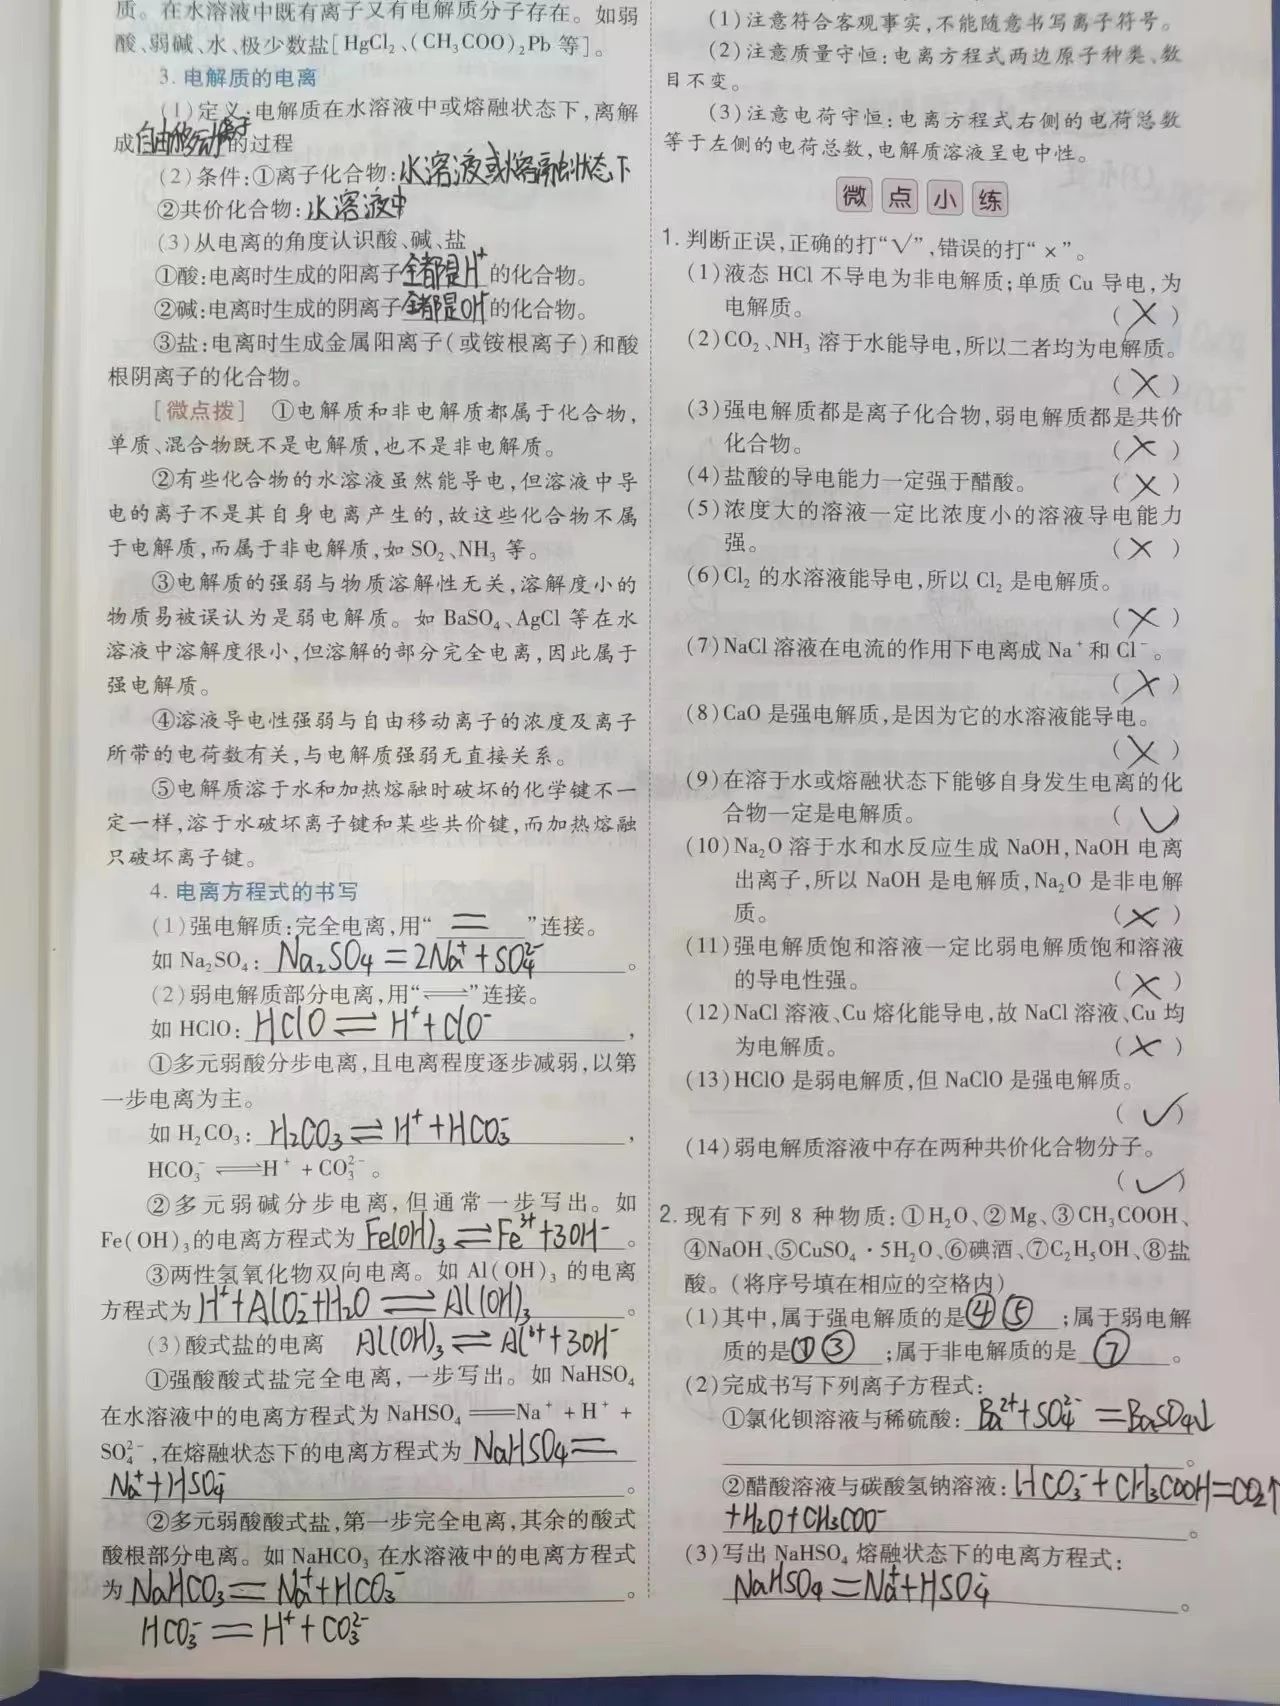 质。在水溶液中既有离子又有电解质分子存在。如弱
酸、弱碱、水、极少数盐[HgCl₂、(CH₃COO)₂Pb等]。
3. 电解质的电离
(1)定义:电解质在水溶液中或熔融状态下,离解
成自由移动离子的过程
(2)条件:①离子化合物:水溶液或熔融状态下
②共价化合物:水溶液中
(3)从电离的角度认识酸、碱、盐
①酸:电离时生成的阳离子全都是H⁺的化合物。
②碱:电离时生成的阴离子全都是OH⁻的化合物。
③盐:电离时生成金属阳离子(或铵根离子)和酸
根阴离子的化合物。
[微点拨] ①电解质和非电解质都属于化合物,
单质、混合物既不是电解质,也不是非电解质。
②有些化合物的水溶液虽然能导电,但溶液中导
电的离子不是其自身电离产生的,故这些化合物不属
于电解质,而属于非电解质,如SO₂、NH₃等。
③电解质的强弱与物质溶解性无关,溶解度小的
物质易被误认为是弱电解质。如BaSO₄、AgCl等在水
溶液中溶解度很小,但溶解的部分完全电离,因此属于
强电解质。
④溶液导电性强弱与自由移动离子的浓度及离子
所带的电荷数有关,与电解质强弱无直接关系。
⑤电解质溶于水和加热熔融时破坏的化学键不一
定一样,溶于水破坏离子键和某些共价键,而加热熔融
只破坏离子键。
4. 电离方程式的书写
(1)强电解质:完全电离,用“=”连接。
如Na₂SO₄: Na₂SO₄=2Na⁺+SO₄²⁻。
(2)弱电解质部分电离,用“⇌”连接。
如HClO: HClO⇌H⁺+ClO⁻,
①多元弱酸分步电离,且电离程度逐步减弱,以第
一步电离为主。
如H₂CO₃: H₂CO₃⇌H⁺+HCO₃⁻,
HCO₃⁻⇌H⁺+CO₃²⁻。
②多元弱碱分步电离,但通常一步写出。如
Fe(OH)₃的电离方程式为Fe(OH)₃⇌Fe³⁺+3OH⁻。
③两性氢氧化物双向电离。如Al(OH)₃的电离
方程式为H⁺+AlO₂⁻+H₂O⇌Al(OH)₃。
(3)酸式盐的电离 Al(OH)₃⇌Al³⁺+3OH⁻
①强酸酸式盐完全电离,一步写出。如NaHSO₄
在水溶液中的电离方程式为NaHSO₄══Na⁺+H⁺+
SO₄²⁻,在熔融状态下的电离方程式为NaHSO₄=
Na⁺+HSO₄⁻。
②多元弱酸酸式盐,第一步完全电离,其余的酸式
酸根部分电离。如NaHCO₃在水溶液中的电离方程式
为NaHCO₃=Na⁺+HCO₃⁻。
HCO₃⁻=H⁺+CO₃²⁻
(1)注意符合客观事实,不能随意书写离子符号。
(2)注意质量守恒:电离方程式两边原子种类、数
目不变。
(3)注意电荷守恒:电离方程式右侧的电荷总数
等于左侧的电荷总数,电解质溶液呈电中性。
微点小练
1. 判断正误,正确的打“√”,错误的打“×”。
(1)液态HCl不导电为非电解质;单质Cu导电,为
电解质。 (×)
(2)CO₂、NH₃溶于水能导电,所以二者均为电解质。
(×)
(3)强电解质都是离子化合物,弱电解质都是共价
化合物。 (×)
(4)盐酸的导电能力一定强于醋酸。 (×)
(5)浓度大的溶液一定比浓度小的溶液导电能力
强。 (×)
(6)Cl₂的水溶液能导电,所以Cl₂是电解质。
(×)
(7)NaCl溶液在电流的作用下电离成Na⁺和Cl⁻。
(×)
(8)CaO是强电解质,是因为它的水溶液能导电。
(×)
(9)在溶于水或熔融状态下能够自身发生电离的化
合物一定是电解质。 (√)
(10)Na₂O溶于水和水反应生成NaOH,NaOH电离
出离子,所以NaOH是电解质,Na₂O是非电解
质。 (×)
(11)强电解质饱和溶液一定比弱电解质饱和溶液
的导电性强。 (×)
(12)NaCl溶液、Cu熔化能导电,故NaCl溶液、Cu均
为电解质。 (×)
(13)HClO是弱电解质,但NaClO是强电解质。
(√)
(14)弱电解质溶液中存在两种共价化合物分子。
(√)
2. 现有下列8种物质:①H₂O、②Mg、③CH₃COOH、
④NaOH、⑤CuSO₄·5H₂O、⑥碘酒、⑦C₂H₅OH、⑧盐
酸。(将序号填在相应的空格内)
(1)其中,属于强电解质的是④⑤;属于弱电解
质的是①③;属于非电解质的是⑦。
(2)完成书写下列离子方程式:
①氯化钡溶液与稀硫酸: Ba²⁺+SO₄²⁻=BaSO₄↓
。
②醋酸溶液与碳酸氢钠溶液: HCO₃⁻+CH₃COOH=CO₂↑
+H₂O+CH₃COO⁻。
(3)写出NaHSO₄熔融状态下的电离方程式:
NaHSO₄=Na⁺+HSO₄⁻。